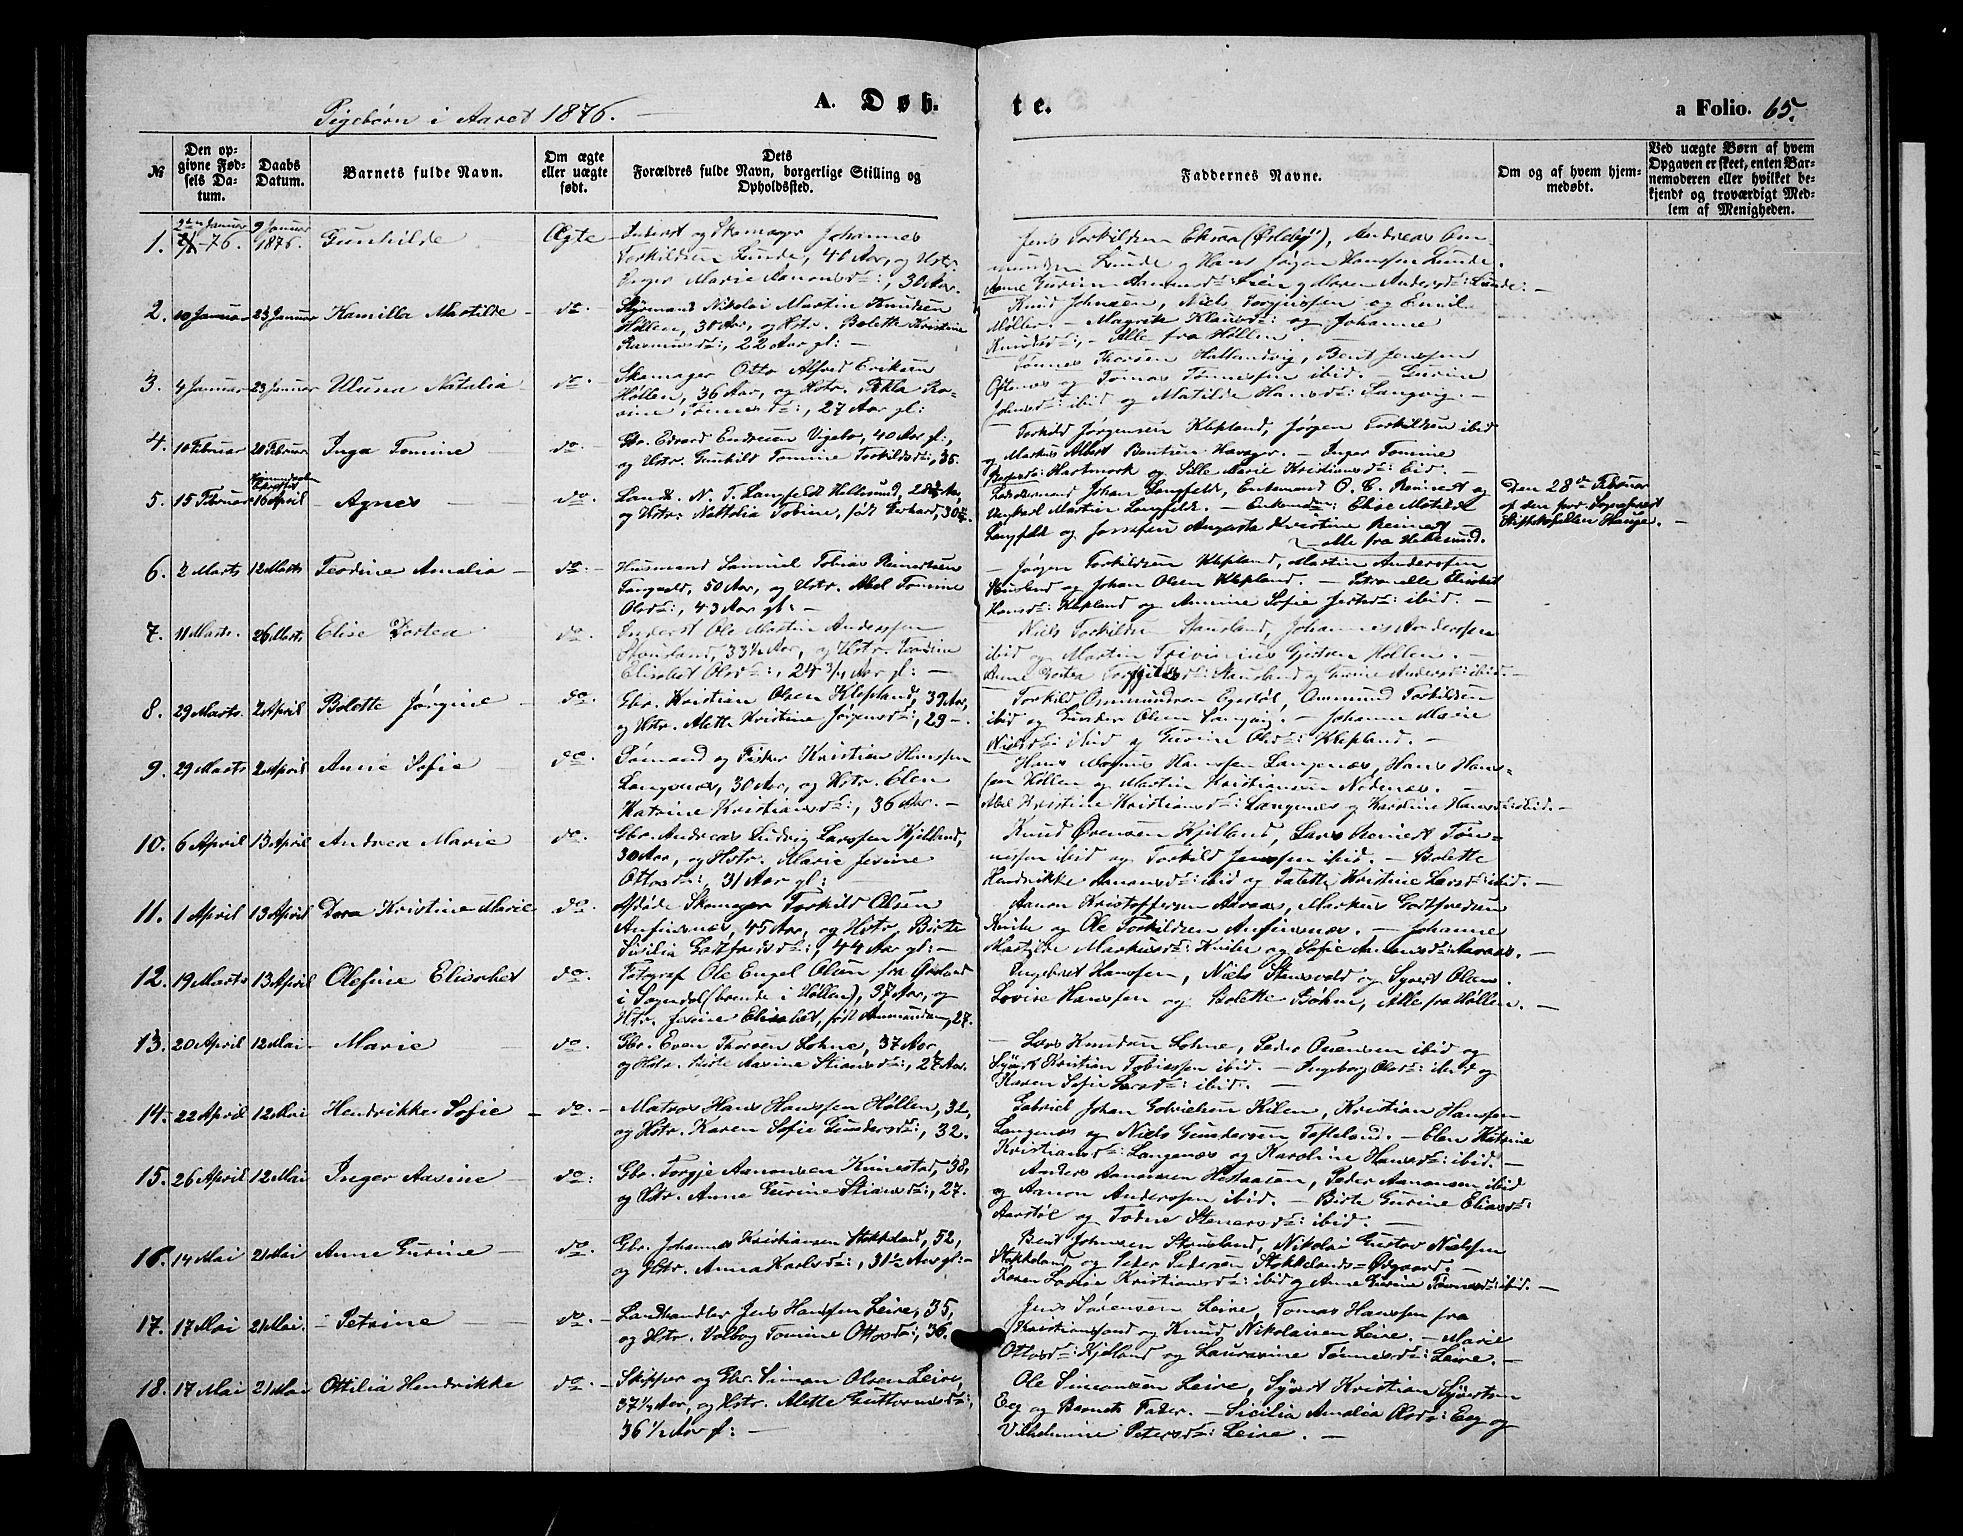 Pigebørn i Aaret 1876. A. Døb-
te. a Folio. 65.
№
Den op-
givne Fød-
sels Da-
tum.
Daabs
Datum.
Barnets fulde Navn.
Om ægte
eller uægte
født.
Dets
Forældres fulde Navn, borgerlige Stilling og
Opholdssted.
Faddernes Navne.
Om og af hvem hjem-
medøbt.
Ved uægte Børn af hvem
Opgaven er skeet, enten Bar-
nemoderen eller hvilket be-
kjendt og troværdigt Med-
lem af Menigheden.
1. 2den Januar 76. 9 Januar 1876. Gunhilde Ægte Inderst og Skomager Johannes
Torkildsen Lunde, 40 Aar, og Hstr.
Inger Marie Aanonsd:, 30 Aar.
Jens Torkildsen Ekraa (Øsleby), Andreas Om-
mundsen Lunde og Hans Jørgen Hanssen Lunde.
Anne Gurine Aanonsd: og Maren Andersd: Lunde. -
2. 10 Januar 23 Januar Kamilla Mastilde do. Styrmand Nikolai Martin Knudsen
Høllen, 30 Aar, og Hstr. Bolette Kristine
Rasmusd:, 22 Aar gl: -
Knud Johnsen, Niels Torginssen og Emil
Møller. - Klausd: og Johanne
Knudsd:, - Alle fra Høllen. -
3. 4 Januar 23 Januar Natalia do. Skomager Otto Alfred Eriksen
Høllen, 36 Aar, og Hstr. Tekla Ra-
sine Tønnesd:, 27 Aar gl:
Tønnes Thorsen Hallandvig, Bent Jenssen
Østenes og Tomas Tønnessen ibid. - Gurine
Johnsd: ibid og Matilde Hansd: Langvig. -
4. 10 Februar 20 Februar Inga Tomine do. Gbr. Edvard Endresen Vigebo, 40 Aar gl:,
og Hstr. Gunhild Tomine Torkildsd:, 35.
Torkild Jørgensen Klepland, Jørgen Torkildsen ibid
og Markus Albert Bentsen Haver. - Inger Tomine
Hartmork og Sille Marie Kristiansd: Eid. -
5. 15 Februar 16 April Agnes do. Landh. N. T. Langfeldt Hellesund, 28½ Aar,
og Hstr. Nattalia Tobine, født Gerhard, 30½.
Johan Langfeldt, Enkemand O. C. Reinert og
Ungkarl Martin Langfeldt. - Enkemadam: Elise Matilde
Langfeldt og Jomfru Augusta Kristine Reinert -
alle fra Hellesund.
Den 28de Februar
af den for Sogneprest
Stiftskapellan Hauge. -
6. 2 Marts 12 Marts Teodine Amalia do. Husmand Samuel Tobias Reinertsen
Tangvald, 50 Aar, og Hstr. Abel Tomine
Olsd:, 43 Aar gl: -
- Jørgen Torkildsen Klepland, Martin Anderssen
og Johan Olsen Klepland. - Petronelle Elisabet
Hansd: Klepland og Annine Sofie Jensd: ibid. -
7. 11 Marts. 26 Marts. Elise Dortea do. Inderst Ole Martin Anderssen
Stausland, 33½ Aar, og Hstr. Tomine
Elisabet Olsd:, 24 3/4 Aar gl: -
Niels Torkildsen Stausland, Johannes Anderssen
ibid og Martin Trivinius Gjertsen Høllen. -
Anne Dortea Torkildsd: Stausland og Gurine Andersd: ibid. -
8. 29 Marts. 2 April Bolette Jørgine do. Gbr. Kristian Olsen Klepland, 39 Aar,
og Hstr. Alette Kristine Jørgensd:, 29 -.
Torkild Ommundsen Egestøl, Ommund Torkildsen
ibid og Gunder Olsen Langvig. - Johanne Marie
Nielsd: ibid og Gurine Olsd: Klepland. -
9. 29 Marts 2 April Anne Sofie do. Sømand og Fisker Kristian Hanssen
Langenes, 30 Aar, og Hstr. Elen
Katrine Kristiansd:, 36 Aar. -
Hans Magnus Hanssen Langenes, Hans Hans-
sen Høllen og Martin Kristiansen Nodenes. -
Abel Kristine Kristiansd: Langenes og Karoline Hansd: ibid. -
10. 6 April 13 April Andrea Marie do. Gbr. Andreas Ludvig Larssen Kjelland,
30 Aar, og Hstr. Marie Jesine
Ottosd:, 31 Aar gl: -
Knud Ørensen Kjelland, Lars Reinert Tøn-
nessen ibid og Torkild Jenssen ibid. - Bolette
Hendrikke Aanonsd: ibid og Talette Kristine Larsd: ibid. -
11. 1 April 13 April Dora Kristine Marie do. Afdøde Skomager Torkild Olsen
Anfinsnes, 45 Aar, og Hstr. Birte
Sisilia Gottfredsd:, 44 Aar gl: -
Aanon Kristoffersen Aaraas, Markus Godtfredsen
Kvibe og Ole Torkildsen Anfinsnes. - Johanne
Mastilde Markusd: Kvibe og Sofie Aanonsd: Aaraas. -
12. 19 Marts 13 April Olefine Elisabet do. Fotograf Ole Engel Olsen fra Ørsland
i Sogndal (boende i Høllen), 37 Aar, og
Hstr. Jesine Elisabet, født Ammundsen, 27.
Ingebret Hanssen, Niels Stensvold og Syvert Olsen.
Lovise Hanssen og Bolette Bøhn, Alle fra Høllen. -
13. 20 April 12 Mai Marie do. Gbr. Even Thorsen Lohne, 37 Aar,
og Hstr. Birte Aasine Stiansd:, 27 Aar.
- Lars Knudsen Lohne, Peder Ouensen ibid og
Syvert Kristian Tobiassen ibid. - Ingeborg Olsd: ibid og
Karen Sofie Larsd: ibid. -
14. 22 April 12 Mai Hendrikke Sofie do. Matros Hans Hanssen Høllen, 32,
og Hstr. Karen Sofie Gundersd:, 32.
Gabriel Johan Gabrielsen Kilen, Kristian Hanssen
Langenes og Niels Gundersen Tofteland. - Elen Katrine
Kristiansd: Langenes og Karoline Hansd: ibid. -
15. 26 April 12 Mai Inger Aasine do: Gbr. Torgje Aanonsen Kinnestad, 38,
og Hstr. Anne Gurine Stiansd:, 27.
Anders Aanonsen Hestaasen, Peder Aanonsen ibid
og Aanon Anderssen ibid. - Birte Gurine Eliasd:
Aarstøl og Todne Stenersd: ibid. -
16. 14 Mai 21 Mai Anne Gurine do. Gbr. Johannes Kristiansen Stokkeland, 52,
og Hstr. Anna Karlsd:, 31½ Aar gl: -
Bent Johnsen Stausland, Nikolai Gustav Nielssen
Stokkeland og Peder Pedersen Stokkelands-Ødegaard. -
Karen Lovise Kristiansd: ibid og Anne Gurine Tønnesd: ibid. -
17. 17 Mai 21 Mai. Petrine do. Landhandler Jens Hanssen Leire, 35,
og Hstr. Valborg Tomine Ottosd:, 36.
Jens Sørensen Leire, Tomas Hanssen fra
Kristianssand og Knud Nikolaisen Leire. - Marie
Ottosd: Kjelland og Lauraine Tønnesd: Leire. -
18. 17 Mai 21 Mai Ottilia Hendrikke do. Skipper og Gbr. Simon Olsen Leire,
37½ Aar, og Hstr. Alette Guttormsd:,
36½ Aar gl: -
Ole Simonsen Leire, Syvert Kristian Syvertsen
Eeg og Barnets Fader. - Sicilia Amalia Olsd: Eeg og
Vilhelmine Petersd: Leire. -